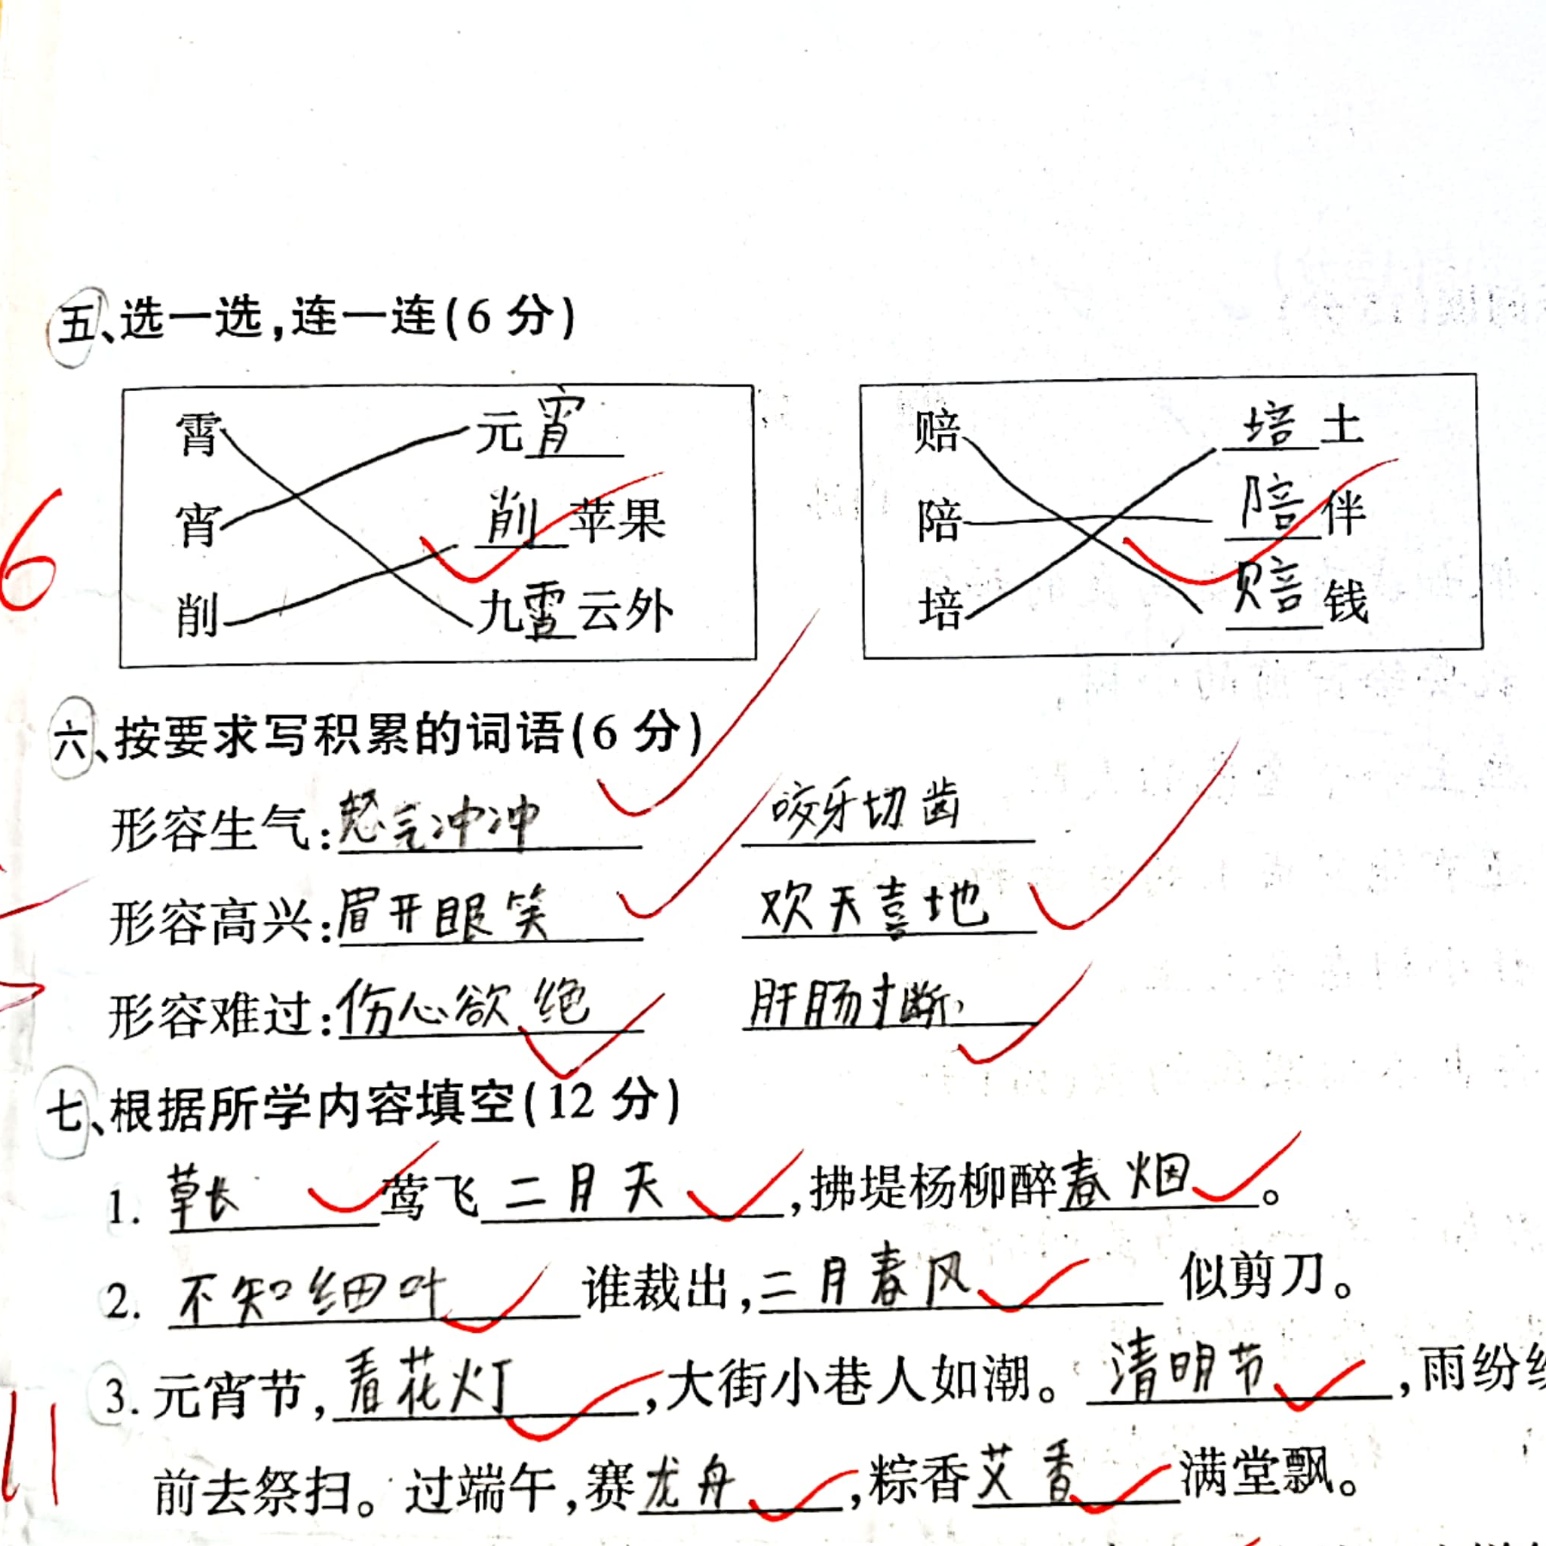 五、选一选,连一连(6 分)
霄 元宵 赔 培土
宵 削苹果 陪 陪伴
削 九霄云外 培 赔钱
6
六、按要求写积累的词语(6 分)
形容生气:怒气冲冲 咬牙切齿
形容高兴:眉开眼笑 欢天喜地
形容难过:伤心欲绝 肝肠寸断
七、根据所学内容填空(12 分)
1. 草长莺飞二月天,拂堤杨柳醉春烟。
2. 不知细叶谁裁出,二月春风似剪刀。
3. 元宵节,看花灯,大街小巷人如潮。清明节,雨纷纷
11
前去祭扫。过端午,赛龙舟,粽香艾香满堂飘。